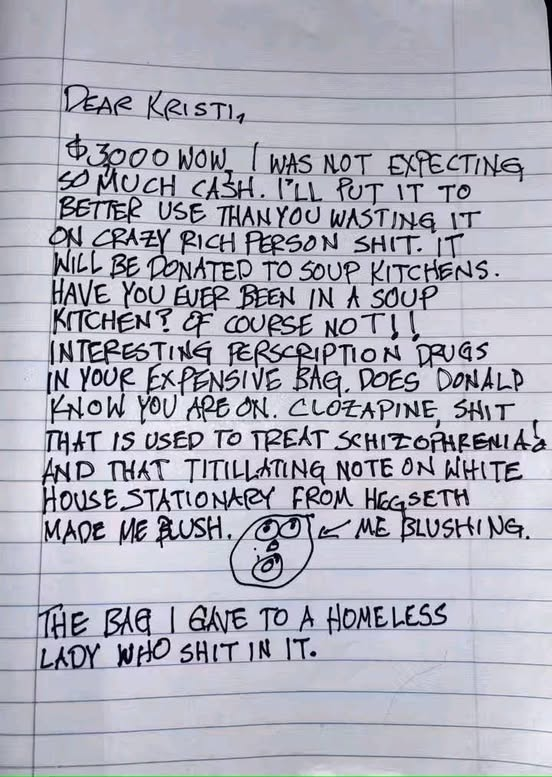 DEAR KRISTI,
$3000 WOW, I WAS NOT EXPECTING
SO MUCH CASH. I'LL PUT IT TO
BETTER USE THAN YOU WASTING IT
ON CRAZY RICH PERSON SHIT. IT
WILL BE DONATED TO SOUP KITCHENS.
HAVE YOU EVER BEEN IN A SOUP
KITCHEN? OF COURSE NOT!!
INTERESTING PERSCRIPTION DRUGS
IN YOUR EXPENSIVE BAG. DOES DONALD
KNOW YOU ARE ON. CLOZAPINE, SHIT
THAT IS USED TO TREAT SCHIZOPHRENIA?
AND THAT TITILLATING NOTE ON WHITE
HOUSE STATIONARY FROM HEGSETH
MADE ME BLUSH. ME BLUSHING.
THE BAG I GAVE TO A HOMELESS
LADY WHO SHIT IN IT.